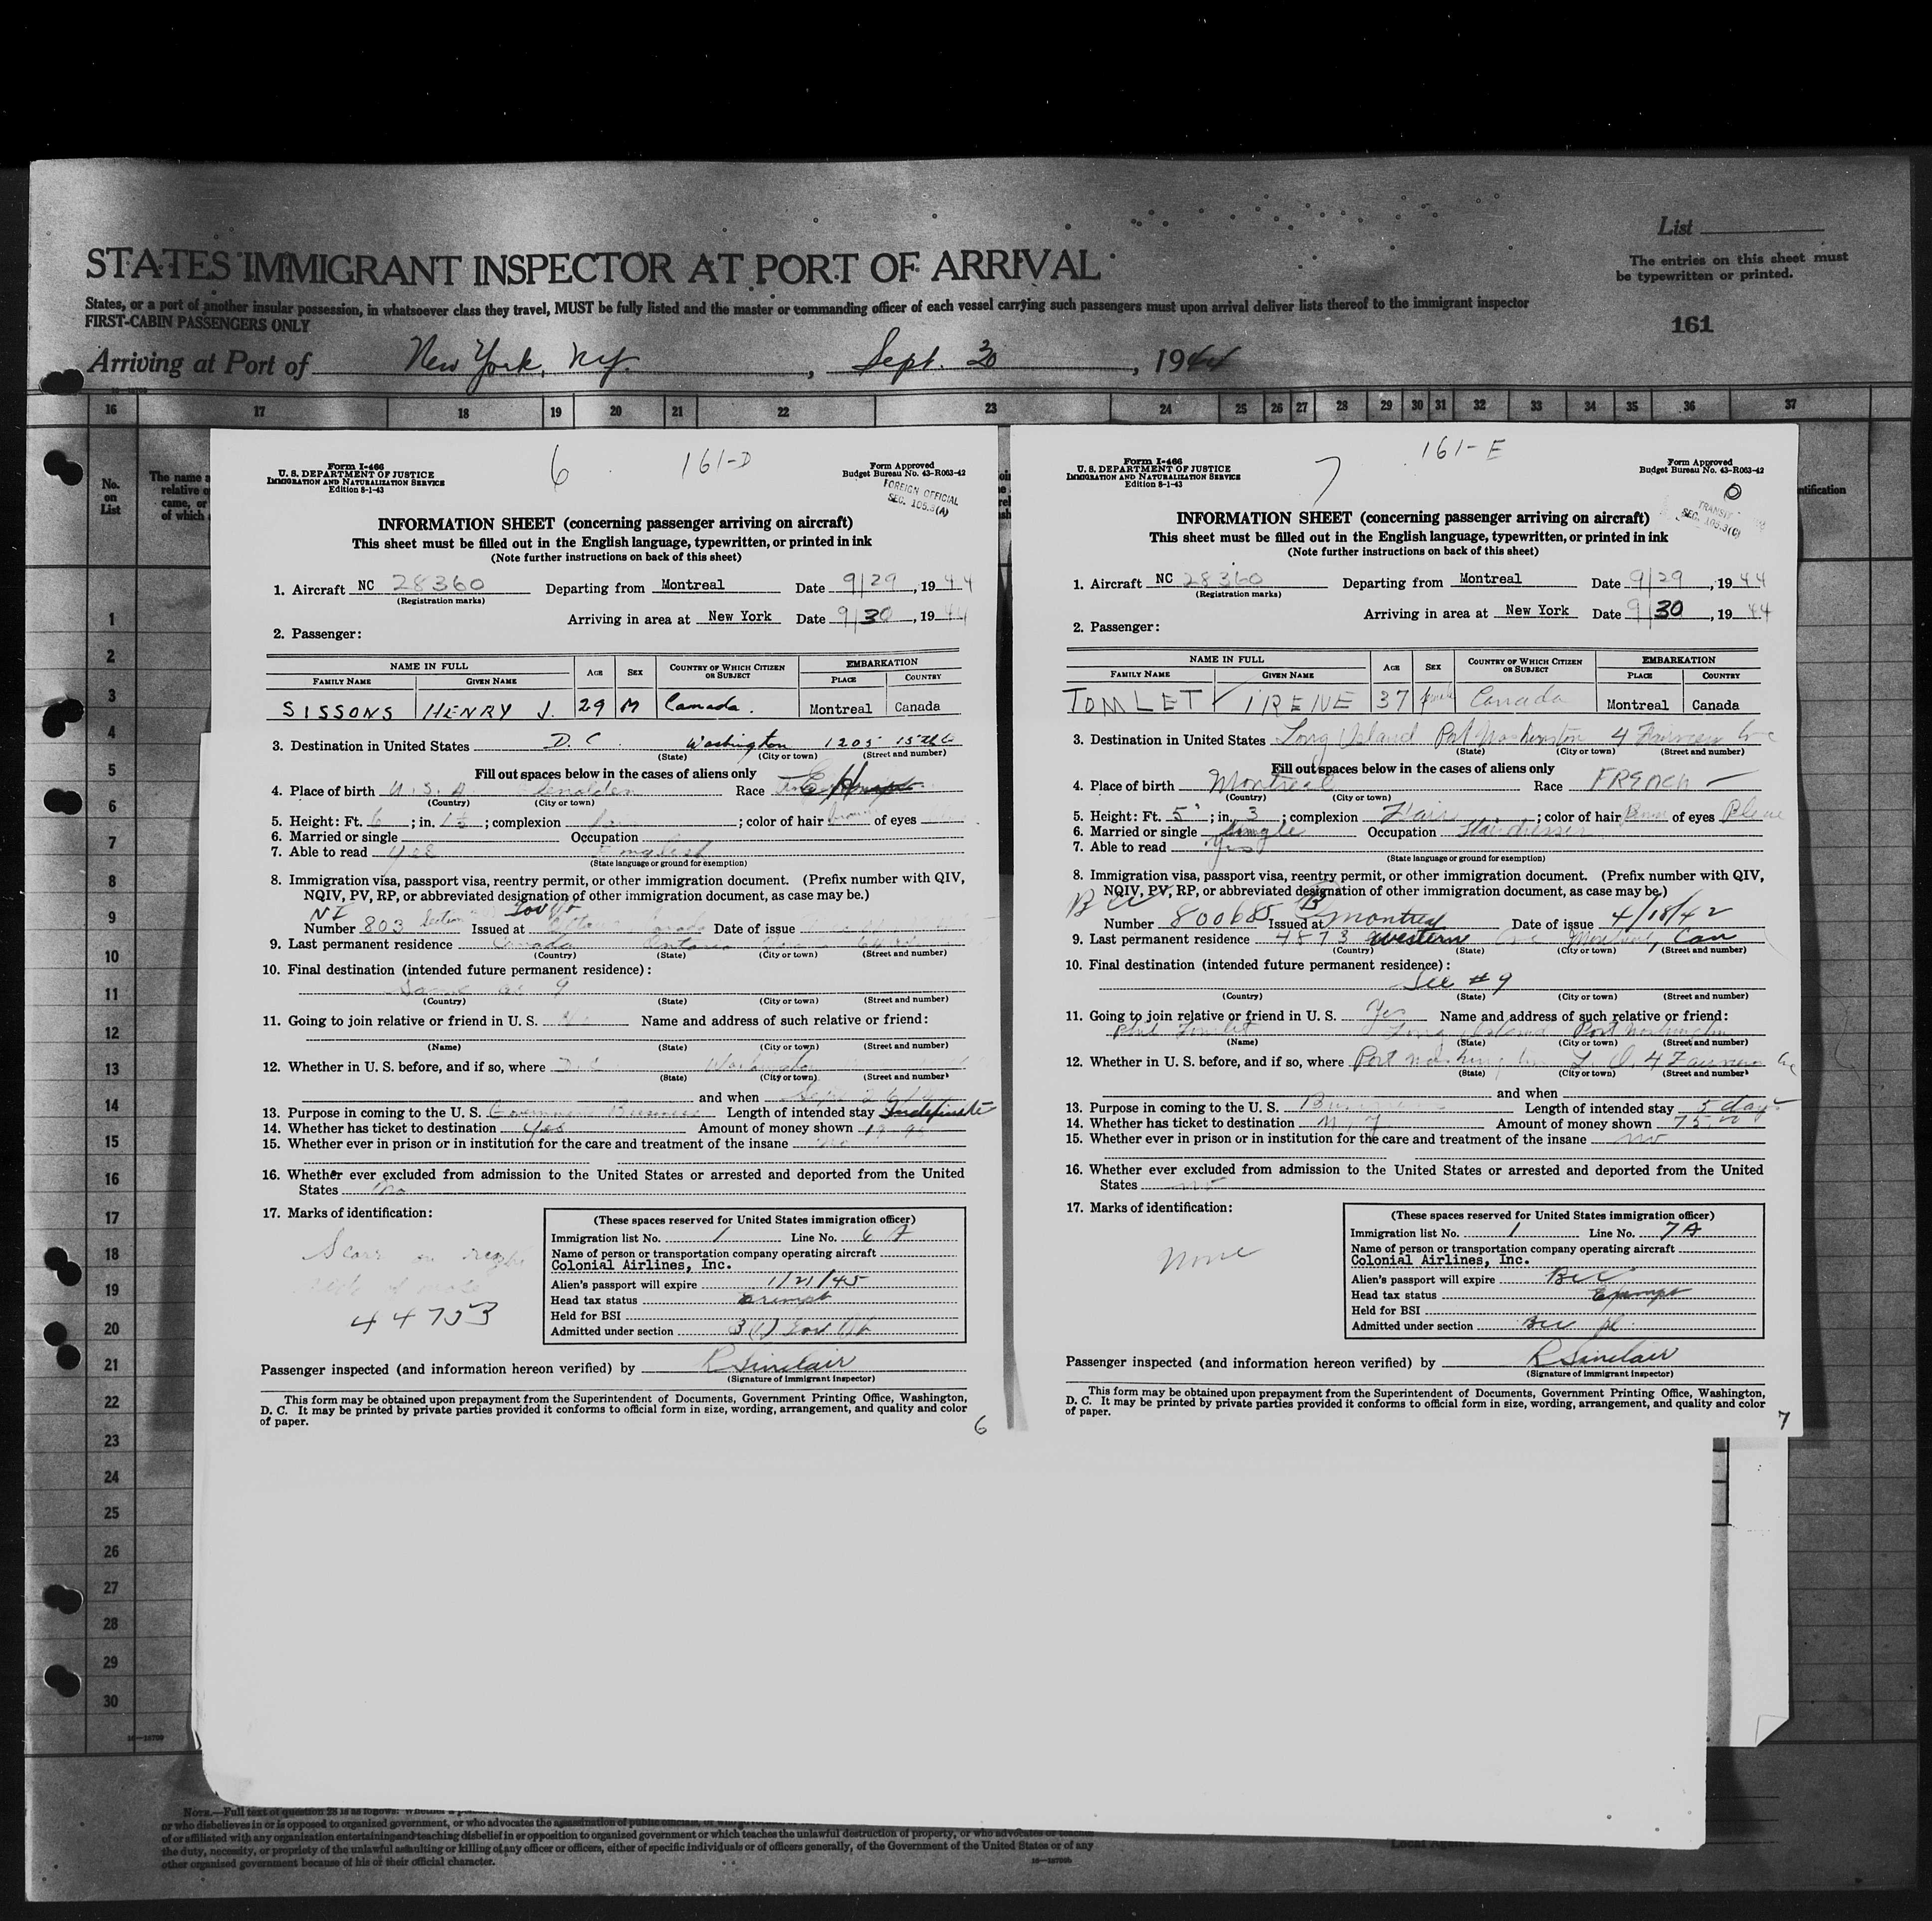 List
STATES IMMIGRANT INSPECTOR AT PORT OF ARRIVAL
The entries on this sheet must
be typewritten or printed.
States, or a port of another insular possession, in whatsoever class they travel, MUST be fully listed and the master or commanding officer of each vessel carrying such passengers must upon arrival deliver lists thereof to the immigrant inspector
FIRST-CABIN PASSENGERS ONLY
161
Arriving at Port of New York, N.Y. , Sept. 30 , 1944
16 17 18 19 20 21 22 23 24 25 26 27 28 29 30 31 32 33 34 35 36 37
No.
on
List
1
2
3
4
5
6
7
8
9
10
11
12
13
14
15
16
17
18
19
20
21
22
23
24
25
26
27
28
29
30
Form I-466
U. S. DEPARTMENT OF JUSTICE
IMMIGRATION AND NATURALIZATION SERVICE
Edition 8-1-43
6
161-D
Form Approved
Budget Bureau No. 43-R063-42
FOREIGN OFFICIAL
SEC. 105.3(A)
INFORMATION SHEET (concerning passenger arriving on aircraft)
This sheet must be filled out in the English language, typewritten, or printed in ink
(Note further instructions on back of this sheet)
1. Aircraft NC 28360 Departing from Montreal Date 9/29, 1944
(Registration marks)
Arriving in area at New York Date 9/30, 1944
2. Passenger:
NAME IN FULL AGE SEX COUNTRY OF WHICH CITIZEN OR SUBJECT EMBARKATION
FAMILY NAME GIVEN NAME PLACE COUNTRY
SISSONS HENRY J. 29 M Canada. Montreal Canada
3. Destination in United States D.C. Washington 1205 15th
(State) (City or town) (Street and number)
Fill out spaces below in the cases of aliens only
4. Place of birth U.S.A. Race
(Country) (City or town)
5. Height: Ft. 6; in. 1½; complexion ; color of hair brown of eyes
6. Married or single Occupation
7. Able to read yes English
(State language or ground for exemption)
8. Immigration visa, passport visa, reentry permit, or other immigration document. (Prefix number with QIV,
NQIV, PV, RP, or abbreviated designation of other immigration document, as case may be.)
Number 803 Section Issued at Ottawa Canada Date of issue
9. Last permanent residence Canada Ontario
(Country) (State) (City or town) (Street and number)
10. Final destination (intended future permanent residence):
Same as 9
(Country) (State) (City or town) (Street and number)
11. Going to join relative or friend in U. S. No Name and address of such relative or friend:
(Name) (State) (City or town) (Street and number)
12. Whether in U. S. before, and if so, where D.C. Washington
(State) (City or town) (Street and number)
and when
13. Purpose in coming to the U. S. Government Business Length of intended stay Indefinite
14. Whether has ticket to destination yes Amount of money shown
15. Whether ever in prison or in institution for the care and treatment of the insane no
16. Whether ever excluded from admission to the United States or arrested and deported from the United
States no
17. Marks of identification:
Scar on right
side of
44753
(These spaces reserved for United States immigration officer)
Immigration list No. 1 Line No. 6 A
Name of person or transportation company operating aircraft
Colonial Airlines, Inc.
Alien's passport will expire 1/21/45
Head tax status exempt
Held for BSI
Admitted under section 3(1) Gov
Passenger inspected (and information hereon verified) by R Sinclair
(Signature of immigrant inspector)
This form may be obtained upon prepayment from the Superintendent of Documents, Government Printing Office, Washington,
D. C. It may be printed by private parties provided it conforms to official form in size, wording, arrangement, and quality and color
of paper.
6
Form I-466
U. S. DEPARTMENT OF JUSTICE
IMMIGRATION AND NATURALIZATION SERVICE
Edition 8-1-43
7
161-E
Form Approved
Budget Bureau No. 43-R063-42
TRANSIT
SEC. 105.3(C)
INFORMATION SHEET (concerning passenger arriving on aircraft)
This sheet must be filled out in the English language, typewritten, or printed in ink
(Note further instructions on back of this sheet)
1. Aircraft NC 28360 Departing from Montreal Date 9/29, 1944
(Registration marks)
Arriving in area at New York Date 9/30, 1944
2. Passenger:
NAME IN FULL AGE SEX COUNTRY OF WHICH CITIZEN OR SUBJECT EMBARKATION
FAMILY NAME GIVEN NAME PLACE COUNTRY
TOMLET IRENE 37 Canada Montreal Canada
3. Destination in United States Long Island Port Washington 4 Fairview Ave
(State) (City or town) (Street and number)
Fill out spaces below in the cases of aliens only
4. Place of birth Montreal Race FRENCH
(Country) (City or town)
5. Height: Ft. 5'; in. 3; complexion Fair; color of hair of eyes Blue
6. Married or single Single Occupation Hairdresser
7. Able to read Yes
(State language or ground for exemption)
8. Immigration visa, passport visa, reentry permit, or other immigration document. (Prefix number with QIV,
NQIV, PV, RP, or abbreviated designation of other immigration document, as case may be.)
BCC
Number 800685 Issued at Montreal Date of issue 4/18/42
9. Last permanent residence 4873 Western Ave Montreal, Can
(Country) (State) (City or town) (Street and number)
10. Final destination (intended future permanent residence):
See #9
(Country) (State) (City or town) (Street and number)
11. Going to join relative or friend in U. S. Yes Name and address of such relative or friend:
Tomlet Long Island Port Washington
(Name) (State) (City or town) (Street and number)
12. Whether in U. S. before, and if so, where Port Washington L.I. 4 Fairview Ave
(State) (City or town) (Street and number)
and when
13. Purpose in coming to the U. S. Length of intended stay 5 days
14. Whether has ticket to destination N.Y Amount of money shown 75.00
15. Whether ever in prison or in institution for the care and treatment of the insane no
16. Whether ever excluded from admission to the United States or arrested and deported from the United
States no
17. Marks of identification:
None
(These spaces reserved for United States immigration officer)
Immigration list No. 1 Line No. 7A
Name of person or transportation company operating aircraft
Colonial Airlines, Inc.
Alien's passport will expire BCC
Head tax status Exempt
Held for BSI
Admitted under section BCC
Passenger inspected (and information hereon verified) by R Sinclair
(Signature of immigrant inspector)
This form may be obtained upon prepayment from the Superintendent of Documents, Government Printing Office, Washington,
D. C. It may be printed by private parties provided it conforms to official form in size, wording, arrangement, and quality and color
of paper.
7
NOTE.—Full text of question 28 is as follows:
or who disbelieves in or is opposed to organized government, or who advocates the assassination of public officials,
of or affiliated with any organization entertaining and teaching disbelief in or opposition to organized government or which teaches the unlawful destruction of property, or who advocates or teaches
the duty, necessity, or propriety of the unlawful assaulting or killing of any officer or officers, either of specific individuals or of officers generally, of the Government of the United States or of any
other organized government because of his or their official character.